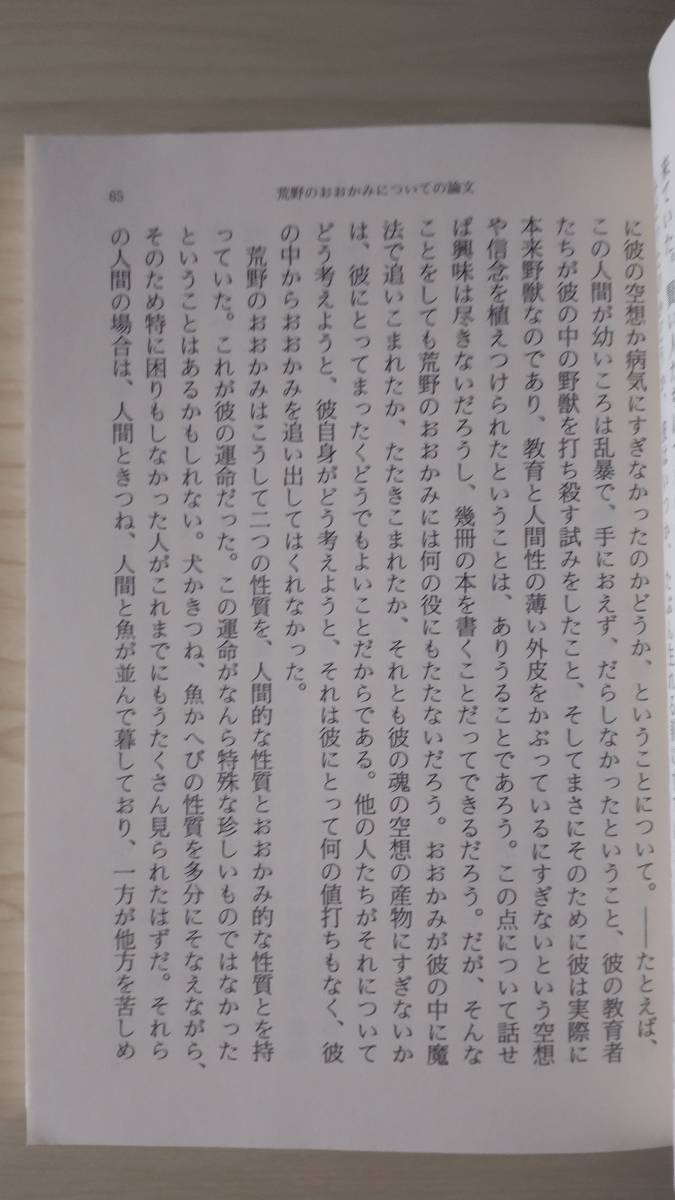 荒野のおおかみについての論文
65
に彼の空想か病気にすぎなかったのかどうか、ということについて。――たとえば、
この人間が幼いころは乱暴で、手におえず、だらしなかったということ、彼の教育者
たちが彼の中の野獣を打ち殺す試みをしたこと、そしてまさにそのために彼は実際に
本来野獣なのであり、教育と人間性の薄い外皮をかぶっているにすぎないという空想
や信念を植えつけられたということは、ありうることであろう。この点について話せ
ば興味は尽きないだろうし、幾冊の本を書くことだってできるだろう。だが、そんな
ことをしても荒野のおおかみには何の役にもたたないだろう。おおかみが彼の中に魔
法で追いこまれたか、たたきこまれたか、それとも彼の魂の空想の産物にすぎないか
は、彼にとってまったくどうでもよいことだからである。他の人たちがそれについて
どう考えようと、彼自身がどう考えようと、それは彼にとって何の値打ちもなく、彼
の中からおおかみを追い出してはくれなかった。
荒野のおおかみはこうして二つの性質を、人間的な性質とおおかみ的な性質とを持
っていた。これが彼の運命だった。この運命がなんら特殊な珍しいものではなかった
ということはあるかもしれない。犬かきつね、魚かへびの性質を多分にそなえながら、
そのため特に困りもしなかった人がこれまでにもうたくさん見られたはずだ。それら
の人間の場合は、人間ときつね、人間と魚が並んで暮しており、一方が他方を苦しめ